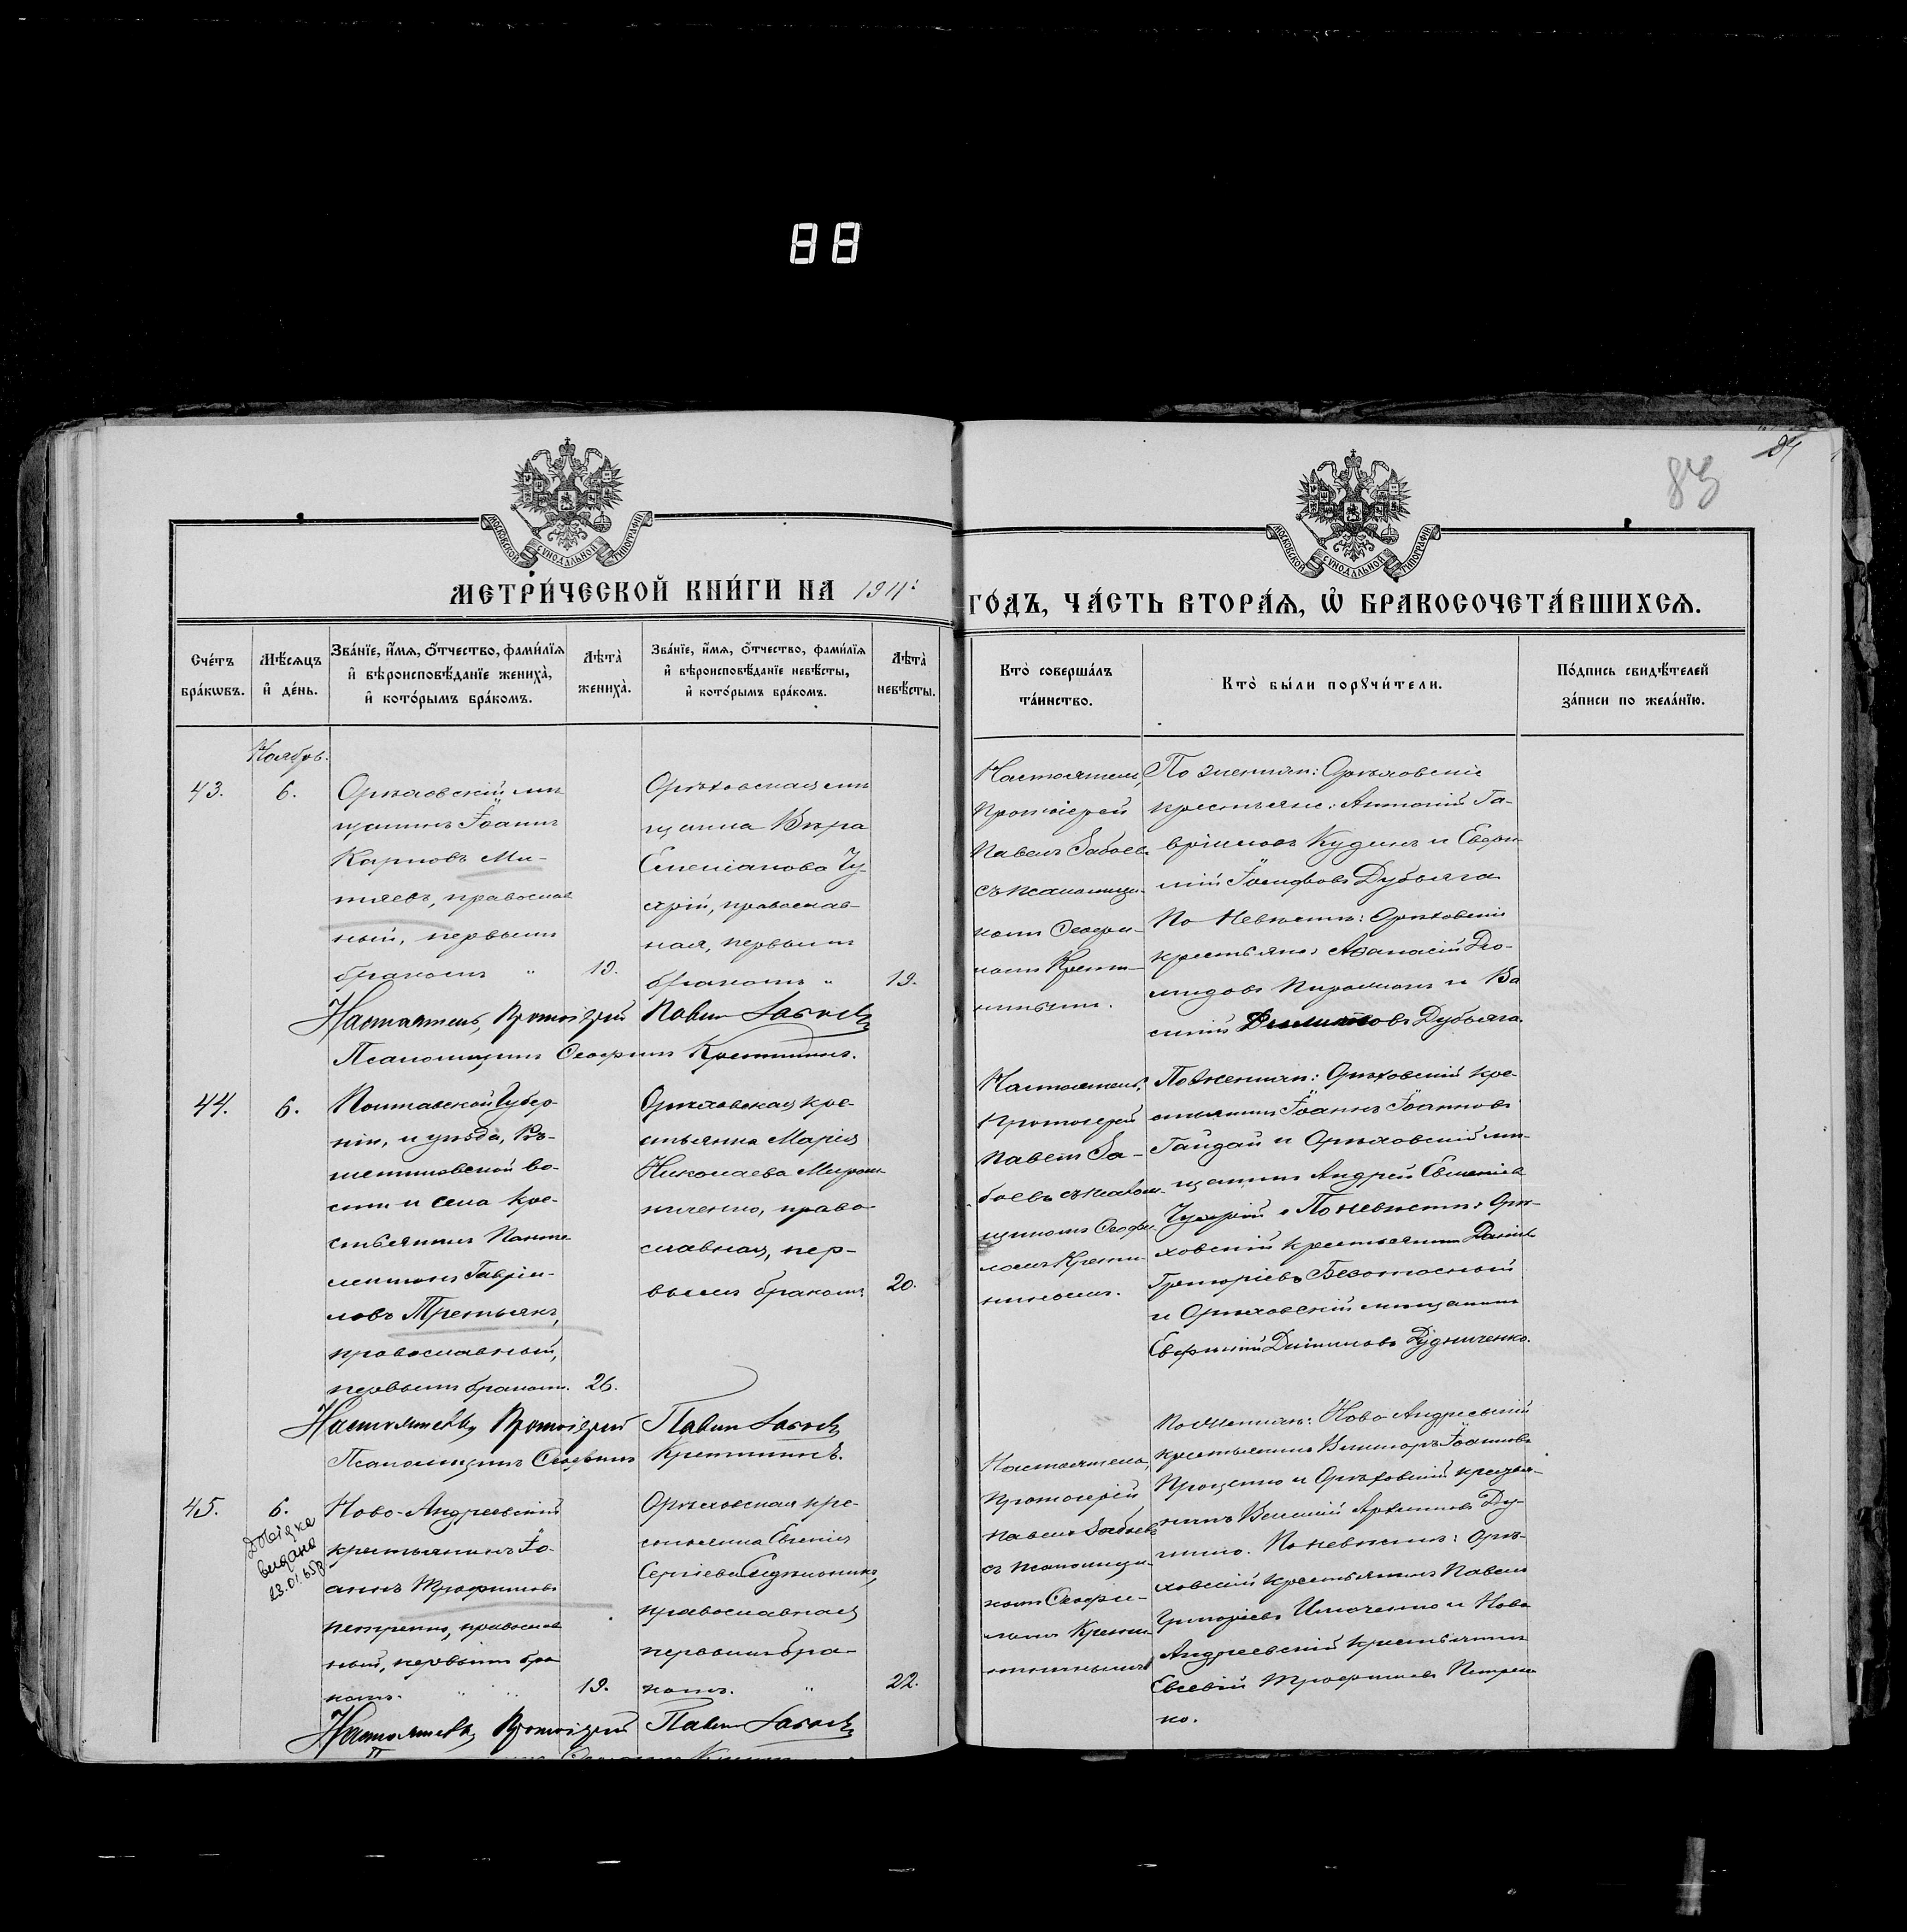 88
83
МОСКОВСКОЙ СѴНОДАЛЬНОЙ ТИПОГРАФІИ
МОСКОВСКОЙ СѴНОДАЛЬНОЙ ТИПОГРАФІИ
МЕТРИ́ЧЕСКОЙ КНИ́ГИ НА 1911:
ГО́ДЪ, ЧА́СТЬ ВТОРА́Ѧ, Ѽ БРАКОСОЧЕТА́ВШИХСѦ.
Сче́тъ бра́кѡвъ.
Мѣ́сѧцъ и҆ де́нь.
Зва́нїе, и҆́мѧ, ѻ҆́тчество, фами́лїѧ
и҆ вѣроисповѣ́данїе жениха̀,
и҆ кото́рымъ бра́комъ.
Лѣта̀ жениха̀.
Зва́нїе, и҆́мѧ, ѻ҆́тчество, фами́лїѧ
и҆ вѣроисповѣ́данїе невѣ́сты,
и҆ кото́рымъ бра́комъ.
Лѣта̀ невѣ́сты.
Кто̀ соверша́лъ
та́инство.
Кто̀ бы́ли порꙋчи́тели.
По́дпись свидѣ́телей
за́писи по жела́нїю.
Ноябрь.
43.
6.
Орѣховскій мѣ
щанинъ Іоаннъ
Карповъ Ми-
тяевъ, православ
ный, первымъ
бракомъ "
19.
Орѣховская мѣ
щанка Вѣра
Емеліанова Чу-
хрій, православ-
ная, первымъ
бракомъ "
19.
Настоятель,
Протоіерей
Павелъ Забоевъ
съ псаломщи-
комъ Феофи-
ломъ Крети-
нинымъ.
По женихѣ: Орѣховскіе
крестьяне: Антоній Га-
вріиловъ Кудинъ и Евфи-
мій Іосифовъ Дубяга
По невѣстѣ: Орѣховскіе
крестьяне Афанасій Део-
мидовъ и Ва
силій Дубяга.
Настоятель, Протоіерей Павелъ Забоевъ
Псаломщикъ Феофилъ Кретининъ.
44.
6.
Полтавской Губер-
ніи, и уѣзда, Рѣ-
шетиловской во-
сти и села кре-
стьянинъ Панте
леимонъ Гавріи-
ловъ Третьякъ,
православный,
первымъ бракомъ.
26.
Орѣховская кре-
стьянка Марія
Николаева Мирош-
ниченко, право
славная, пер-
вымъ бракомъ.
20.
Настоятель,
Протоіерей
Павелъ За-
боевъ съ псалом-
щикомъ Феофи-
ломъ Крети-
нинымъ.
По женихѣ: Орѣховскій кре-
стьянинъ Іоаннъ Іоанновъ
Гайдай и Орѣховскій мѣ-
щанинъ Андрей Емеліановъ
Чухрій. По невѣстѣ: Орѣ-
ховскій крестьянинъ Даніилъ
Григоріевъ
и Орѣховскій мѣщанинъ
Евфимій Рудниченко.
Настоятель, Протоіерей Павелъ Забоевъ
Псаломщикъ Феофилъ Кретининъ.
45.
6.
Довідка
видана
23.01.65р
Ново-Андреевскій
крестьянинъ Іо-
аннъ Трофимовъ
Петренко, православ
ный, первымъ бра
комъ.
19.
Орѣховская кре-
стьянка Евгенія
Сергіева
православная
первымъ бра-
комъ. "
22.
Настоятель,
Протоіерей
Павелъ Забоевъ
съ псаломщи-
комъ Феофи-
ломъ Крети-
нинымъ
По женихѣ: Ново Андреевскій
крестьянинъ Викторъ Іоанновъ
Проценко и Орѣховскій крестья-
нинъ
По невѣстѣ: Орѣ-
ховскій крестьянинъ Павелъ
Григоріевъ Игнатенко и Ново
Андреевскій крестьянинъ
Евсевій Трофимовъ Петрен
ко.
Настоятель, Протоіерей Павелъ Забоевъ